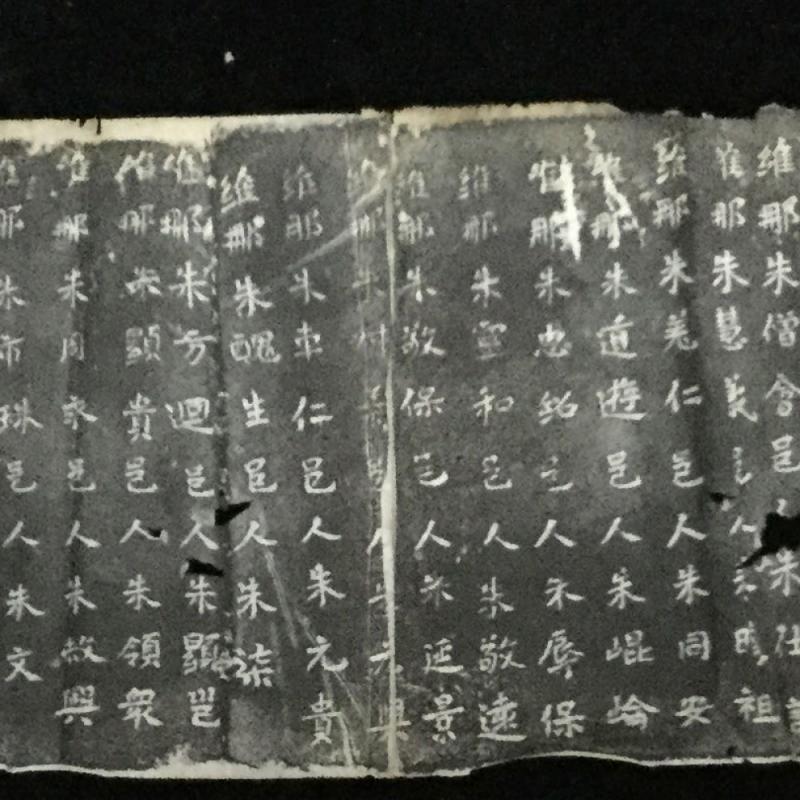 維那朱僧會邑人朱仕
維那朱慧義邑人祖
維那朱羗仁邑人朱同安
維那朱道遊邑人朱崐崘
維那朱忠紹邑人朱辱保
維那朱靈和邑人朱敬遠
維那朱敬保邑人朱延景
維那朱邑人朱元興
維那朱車仁邑人朱元貴
維那朱醜生邑人朱柒
維那朱方迴邑人朱顯邕
維那朱顯貴邑人朱領衆
維那朱同永邑人朱敬興
維那朱市珠邑人朱文